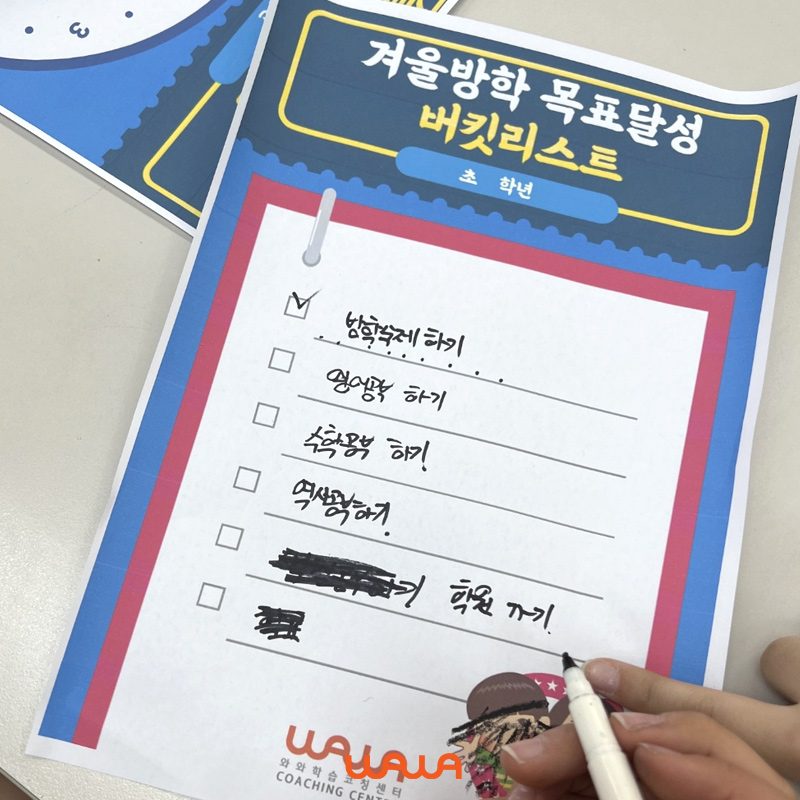 겨울방학 목표달성
버킷리스트
초 학년
방학숙제 하기
영어공부 하기
수학공부 하기!
역사공부하기!
학원 가기!
WAWA
와와학습코칭센터
COACHING CENT
WAWA
3